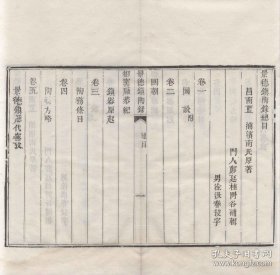 景德鎮陶錄總目
昌南 藍 浦濱南氏原著
門人鄭廷桂問谷補輯
卷一
圖說附
卷二
國朝
御窰廠恭紀
鎮器原起
卷三
陶務條目
卷四
陶務方略
卷五
景德鎮歷代窰攷
景德鎮陶錄
總目
一